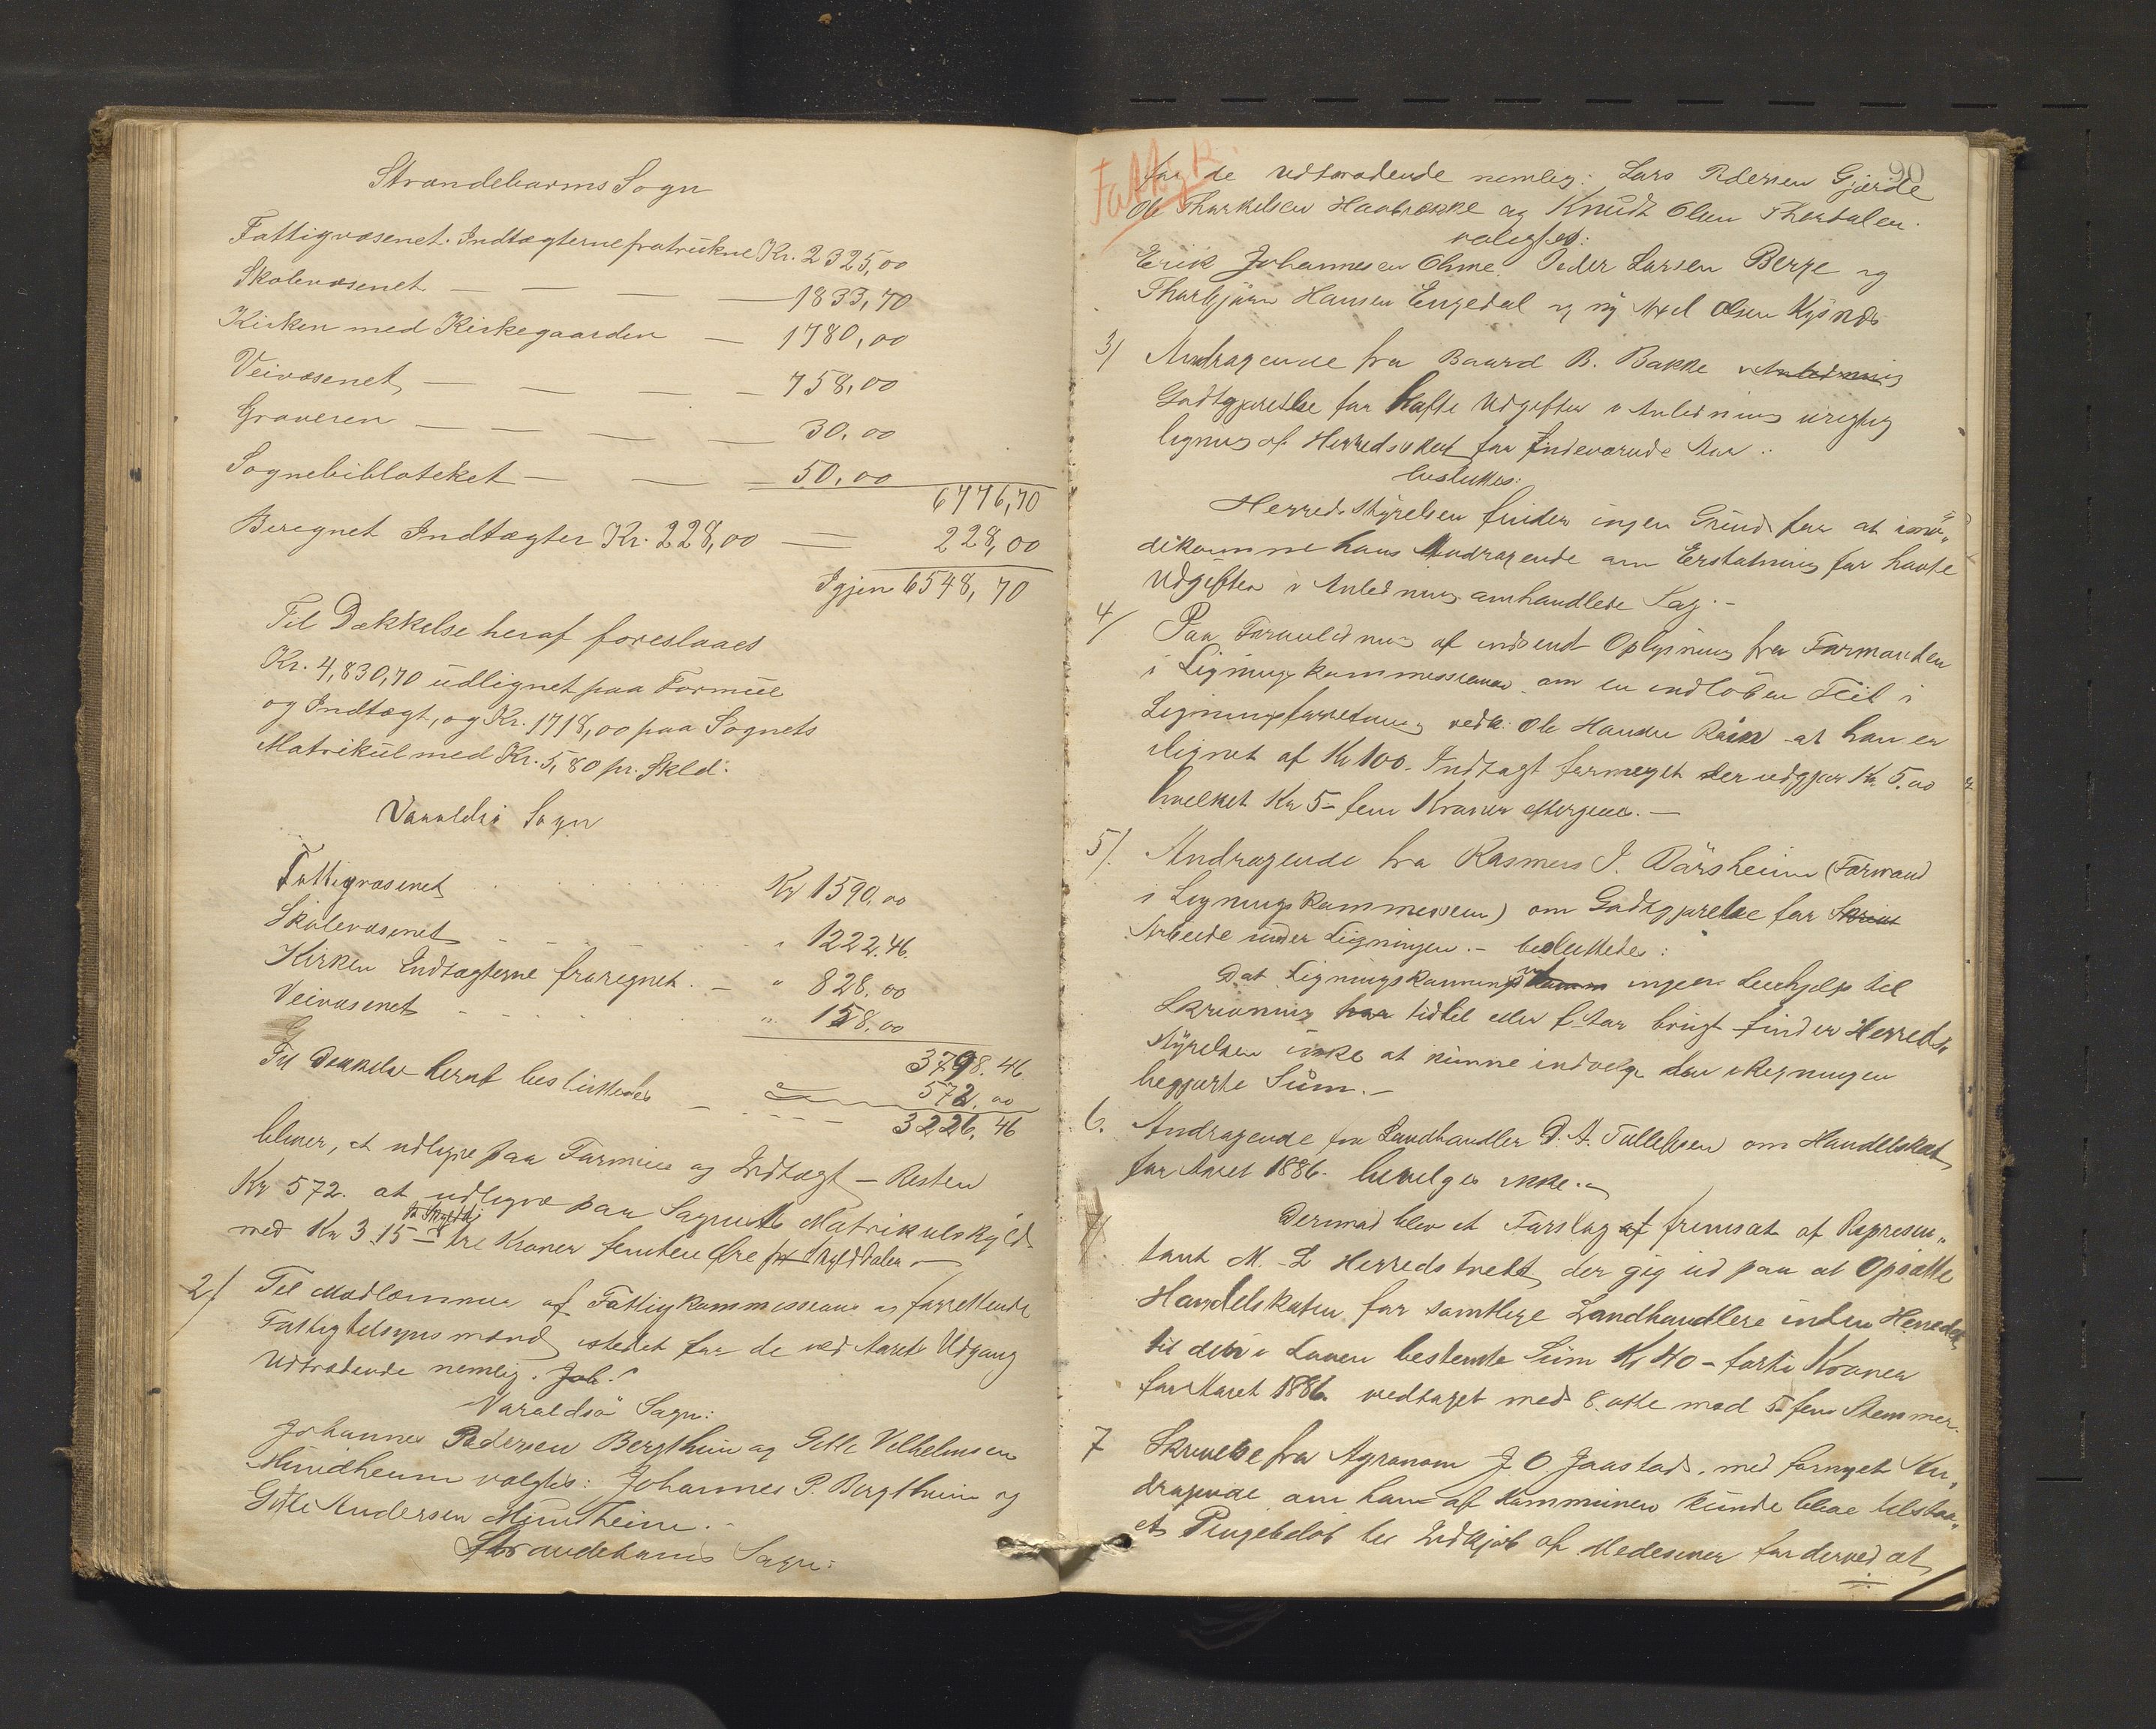 Strandebarms Sogn
Fattigvæsenet. Indtægterne fratrukne Kr. 2325,00
Skolevæsenet — — — — 1833,70
Kirken med Kirkegaarden — 1780,00
Veivæsenet — — — — 758,00
Graveren — — — — — 30,00
Sognebibloteket — — — 50,00
6776,70
Beregnet Indtægter Kr. 228,00 — 228,00
Igjen 6548,70
Til Dækkelse heraf foreslaaes
Kr. 4,830,70 udlignet paa Formue
og Indtægt, og Kr. 1718,00 paa Sognets
Matrikul med Kr. 5,80 pr. Skld.
Varaldsö Sogn
Fattigvæsenet Kr 1590,00
Skolevæsenet " 1222.46.
Kirken Indtægterne fraregnet. — " 828,00
Veivæsenet " 158.00
3798.46
Til Dækkelse heraf besluttedes — 572.00
3226,46
bliver, at udligne paa Formue og Indtægt — Resten
Kr 572. at udligne paa Sognets Matrikulskyld
med Kr 3.15 – tre Kroner femten Øre pr Skylddaler —
2/ Til Medlemmer af Fattigkommissionen og forrettende
Fattigtilsynsmænd istedet for de ved Aarets Udgang
Udtrædende nemlig. Joh.
Varaldsö Sogn:
Johannes Pedersen Bergthun og Gitle Vilhelmsen
Mundheim valgtes: Johannes P. Bergthun og
Gitle Andersen Mundheim.
Strandebarms Sogn:
90
Fattigk.
for de udtrædende nemlig: Lars Pedersen Gjerde
Ole Thorkelsen Haabrekke og Knudt Olsen Thordalen.
valgtes:
Erik Johannesen Ohme. Peder Larsen Berge og
Thorbjørn Hansen Engedal og ny Olsen
3/ Andragende fra Baard B. Bakke i Anledning
Godtgjørelse for hafte Udgifter i Anledning urigtig
ligning af Herredsskat for indeværende Aar.
besluttes:
Herredsstyrelsen finder ingen Grund for at imø„
dekomme hans Andragende om Erstatning for havte
Udgifter i Anledning omhandlede Sag. –
4/ Paa Foranledning af indsendt Oplysning fra Formanden
i Ligningskommissionen om en indløben Feil i
Ligningsforretning vedk. Ole Hansen at han er
lignet af Kr 100. Indtægt formeget der udgjør Kr. 5.00
hvilket Kr 5 – fem Kroner eftergives. —
5/. Andragende fra Rasmus J. (Formand
i Ligningskommissionen) om Godtgjørelse for Skriv
Arbeide under Ligningen. – besluttedes:
Dat Ligningskommis ingen Leiehjelp til
Skrivning har tidtil eller f. Aar brugt finder Herreds„
styrelsen ikke at kunne indvilge den i Regningen
begjærte Süm. –
6. Andragende fra Landhandler D. A. Tillefsen om Handelskat
for Aaret 1886. bevilges ikke. –
7/ Dermed blev et Forslag af fremsat af Repræsen„
tant M. L Herredstveit der gig ud paa at Opsætte
Handelskaten for samtlige Landhandlere inden Herredet
til den i Loven bestemte Süm Kr 40 –førti Kroner
for Aaret 1886. vedtaget med 8. otte mod 5 – fem Stemmer.
7 Skrivelse fra Agronom J. O. Jaastad, med fornyet An„
dragende om han af Kommunen kunde blive tilstaa„
et Pengebeløb til Indkjøb af Medesiner for derved at